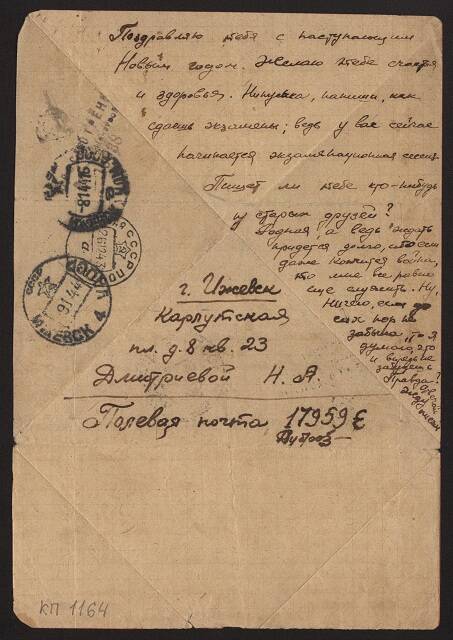 Поздравляю тебя с наступающим
Новым годом. Желаю тебе счастья
и здоровья. Нинуська, напиши, как
сдаешь экзамены; ведь у вас сейчас
начинается экзаменационная сессия.
Пишет ли тебе кто-нибудь
из старых друзей?
Родная, а ведь ждать
придется долго, если
даже кончится война,
то мне все равно
еще служить. Ну,
Ничего, если до
сих пор не
забыла, то я
думаю, что
и впредь не
забудешь
Правда?
Жду
писем
г. Ижевск
Карлутская
пл. д. 8 кв. 23
Дмитриевой Н. А.
Полевая почта 17959 Е
СССР ПО
26.12.43
СССР
9 1 44
ИЖЕВСК 4
КП 1164